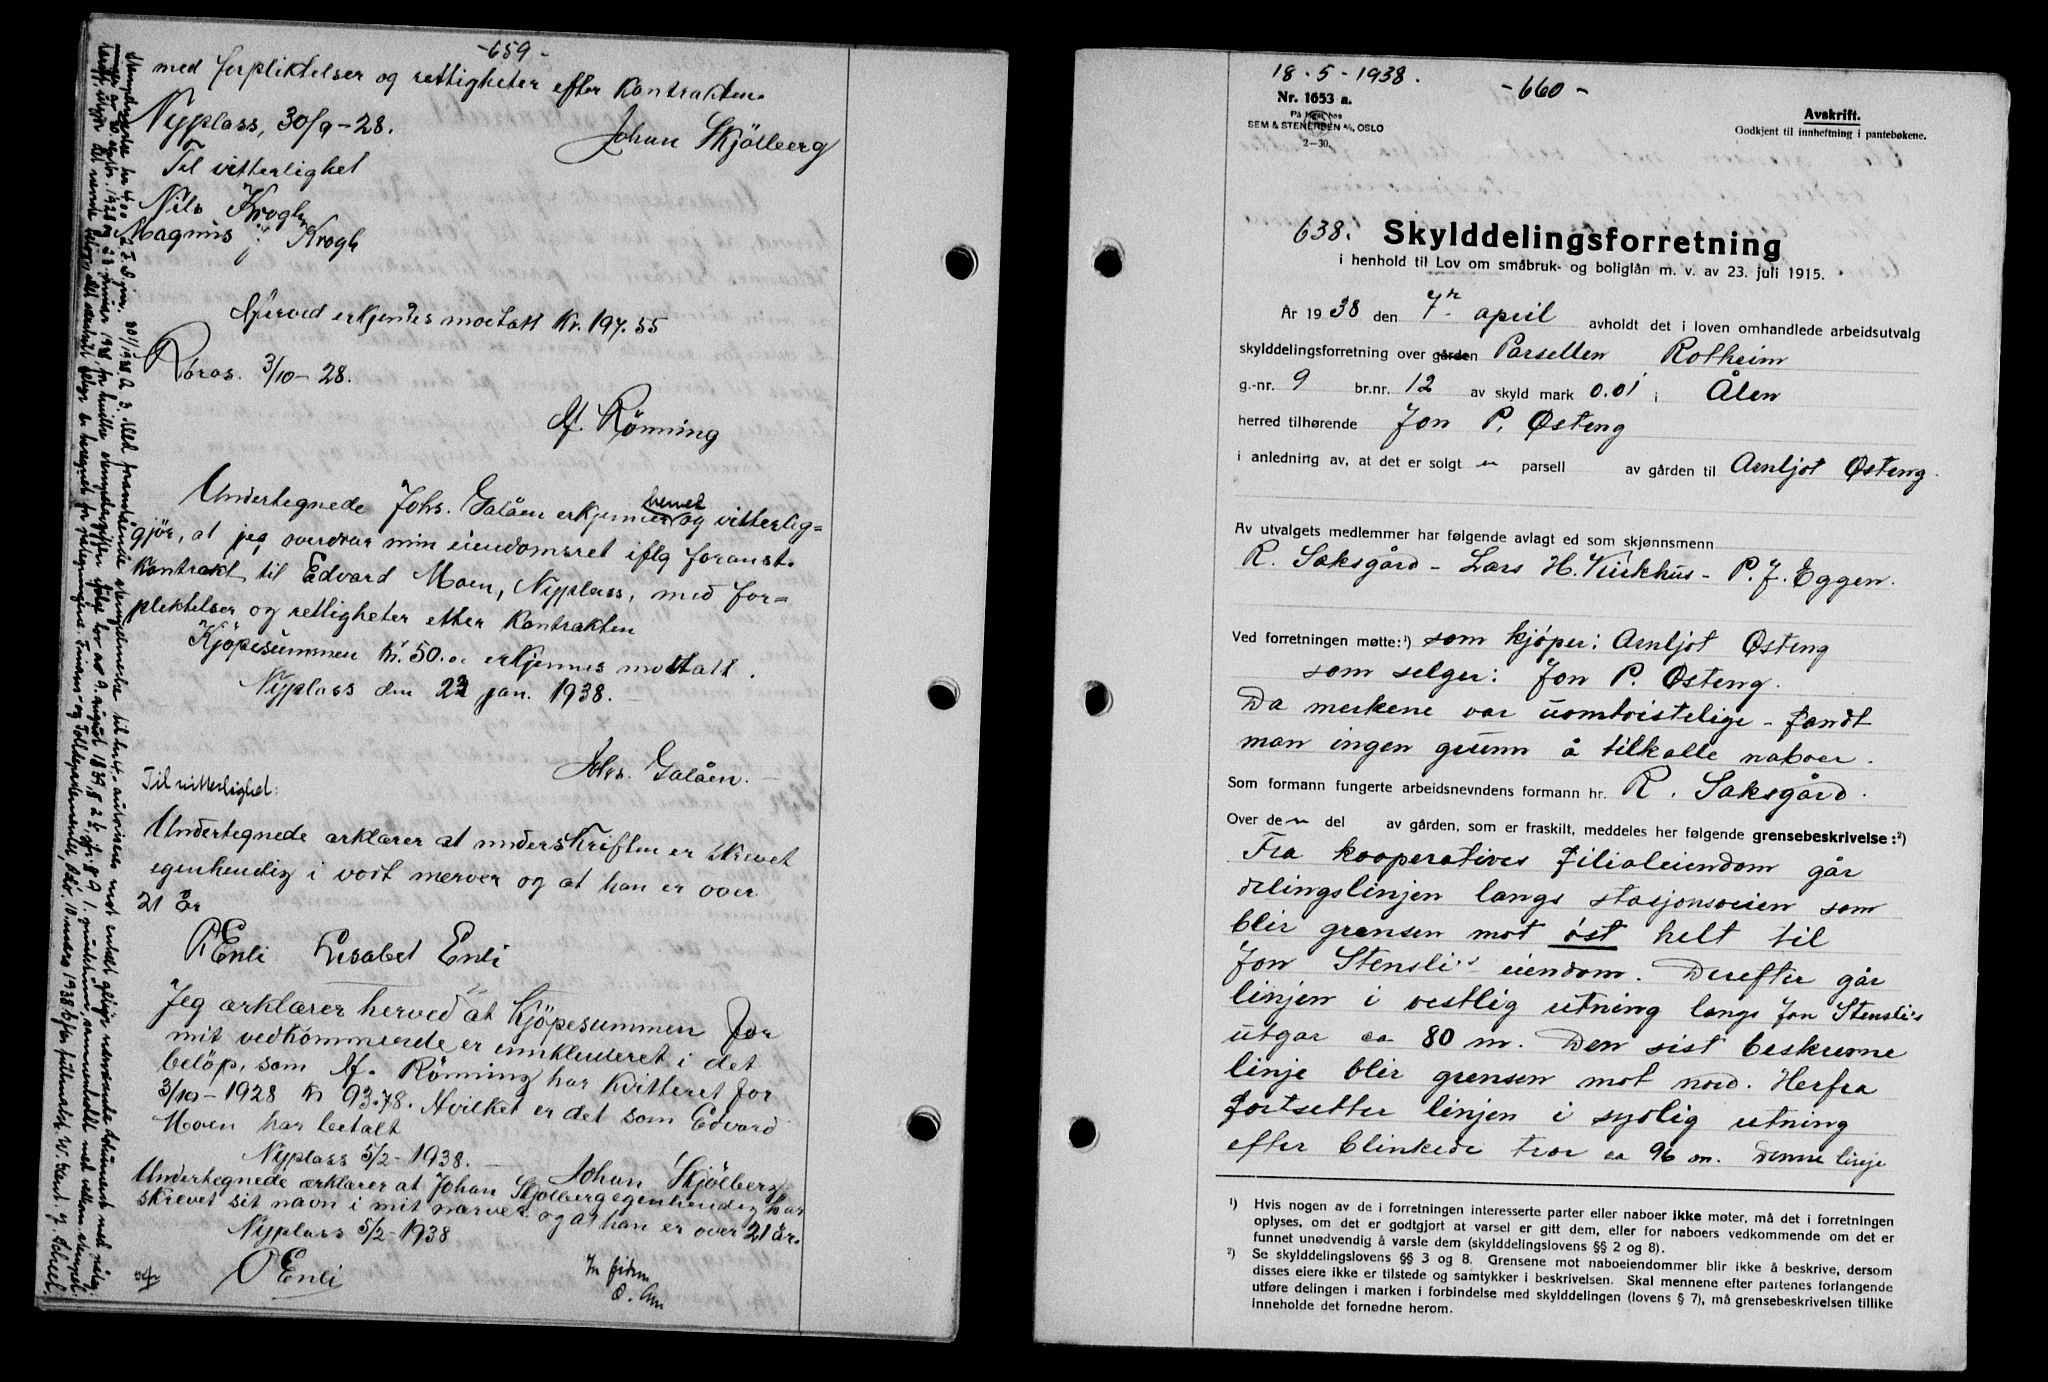 -659-
med forpliktelser og rettigheter efter Kontrakten.
Nyplass, 30/9-28.
Johan Skjölberg
Til vitterlighet
Nils Krogh
Magnus j. Krogh
Hjerved erkjendes mottatt Kr. 197.55
Röros. 3/10-28.
M. Rönning
Undertegnede Johs. Galåen erkjenner herved og vitterlig=
gjör, at jeg overdrar min eiendomsret iflg foranst.
Kontrakt til Edvard Moen, Nyplass, med for=
pliktelser og rettigheter etter Kontrakten
Kjöpesummen Kr. 50.00 erkjennes mottatt.
Nyplass den 23 jan. 1938.
Johs. Galåen.
Til vitterlighet:
Undertegnede ærklærer at underskriften er skrevet
egenhendig i vort nærver og at han er over
21 År
P Enli Lisabet Enli
Jeg ærklærer herved at Kjöpesummen for
mit vedkommende er innkluderet i det
belöp, som M. Rönning har Kvitteret for
3/10-1928 Kr 93.78. Hvilket er det som Edvard
Moen har betalt
Nyplass 5/2-1938.
Johan Skjölberg
Undertegnede ærklærer at Johan Skjölberg egenhendig har
skrevet sit navn i mit nærver og at han er over 21 år.
Nyplass 5/2-1938
P Enli
18-5-1938.
-660-
Nr. 1653 a.
På lager hos
SEM & STENERSEN A/S, OSLO
2-30.
Avskrift.
Godkjent til innheftning i pantebøkene.
638. Skylddelingsforretning
i henhold til Lov om småbruk- og boliglån m. v. av 23. juli 1915.
År 1938 den 7de april avholdt det i loven omhandlede arbeidsutvalg
skylddelingsforretning over gården Parsellen Rotheim
g.-nr. 9 br.nr. 12 av skyld mark 0.01 i Ålen
herred tilhørende Jon P. Østeng
i anledning av, at det er solgt en parsell av gården til Arnljot Østeng.
Av utvalgets medlemmer har følgende avlagt ed som skjønnsmenn
R. Saksgård - Lars H. Kirkhus - P. J. Eggen.
Ved forretningen møtte:¹) som kjøper: Arnljot Østeng
som selger: Jon P. Østeng.
Da merkene var uomtvistelige - fandt
man ingen grunn å tilkalle naboer.
Som formann fungerte arbeidsnevndens formann hr. R. Saksgård.
Over den del av gården, som er fraskilt, meddeles her følgende grensebeskrivelse:²)
Fra kooperatives filialeiendom går
delingslinjen langs stasjonsveien som
blir grensen mot øst helt til
Jon Stensli's eiendom. Derefter går
linjen i vestlig retning langs Jon Stensli's
utgar ca 80 m. Den sist beskrevne
linje blir grensen mot nord. Herfra
fortsetter linjen i sydlig retning
efter blinkede trær ca 96 m. Denne linje
¹) Hvis nogen av de i forretningen interesserte parter eller naboer ikke møter, må det i forretningen
oplyses, om det er godtgjort at varsel er gitt dem, eller for naboers vedkommende om det er
funnet unødvendig å varsle dem (skylddelingslovens §§ 2 og 8).
²) Se skylddelingslovens §§ 3 og 8. Grensene mot naboeiendommer blir ikke å beskrive, dersom
disses eiere ikke er tilstede og samtykker i beskrivelsen. Skal mennene efter partenes forlangende
utføre delingen i marken i forbindelse med skylddelingen (lovens § 7), må grensebeskrivelsen tillike
inneholde det fornødne herom.